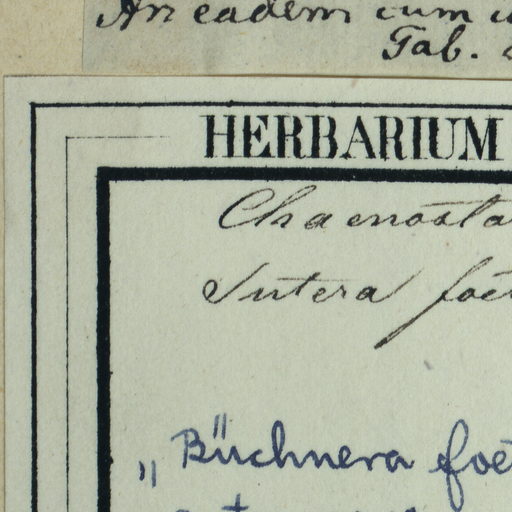 An eadem cum
Tab.
HERBARIUM
Chaenosta
Sutera foet
„Büchnera foet